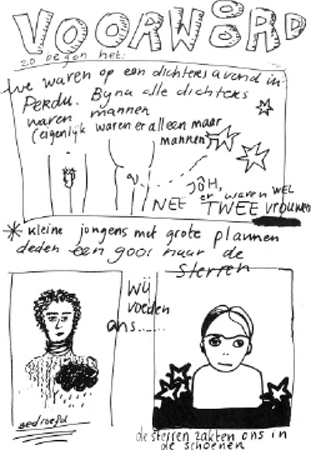 VOORWOORD
zo begon het:
we waren op een dichtersavond in
PERdu. Byna alle dichters
waren mannen
(eigenlijk waren er alleen maar
mannen)
JÔH,
er waren WEL
NEE TWEE vrouwen
* kleine jongens met grote plannen
deden een gooi naar de
sterren
Wij
voelden
ons......
Bedroefd
de sterren zakten ons in
de schoenen